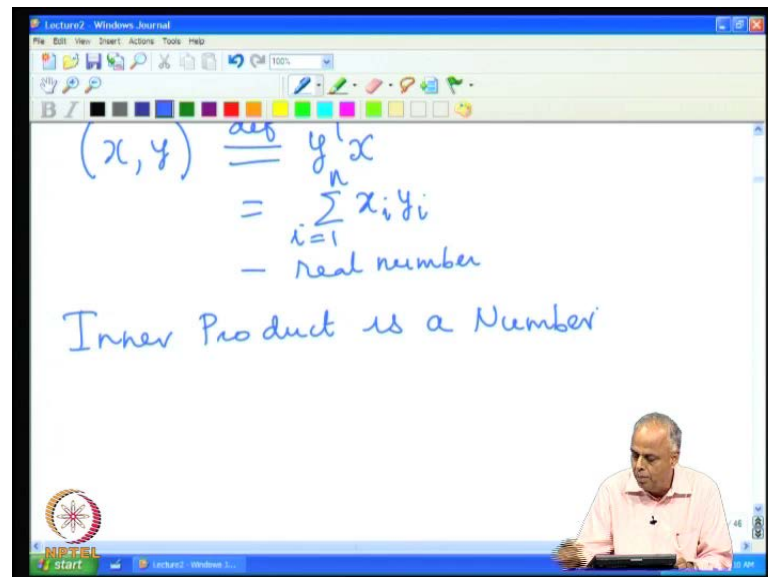 Lecture2 - Windows Journal
File Edit View Insert Actions Tools Help
100%
B I
(x, y) def y' x
= n Σ i=1 x_i y_i
— real number
Inner Product is a Number
/ 46
NPTEL
start Lecture2 - Windows J...
10 AM